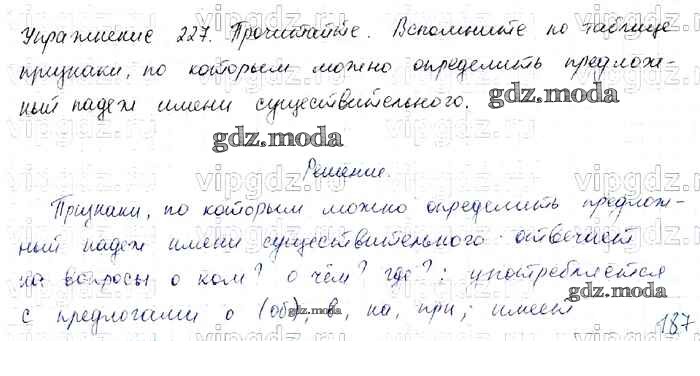 Упражнение 227. Прочитайте. Вспомните по таблице
признаки, по которым можно определить предлож-
ный падеж имени существительного. gdz.moda
gdz.moda
Решение.
Признаки, по которым можно определить предлож-
ный падеж имени существительного: отвечает
на вопросы о ком? о чём? где?; употребляется
gdz.moda
с предлогами о (об), в, на, при; имеет
gdz.moda
187